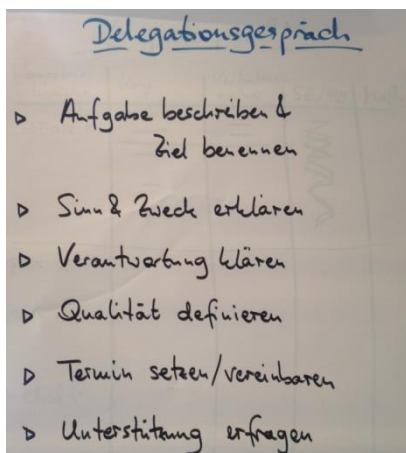 Delegationsgespräch
▷ Aufgabe beschreiben &
Ziel benennen
▷ Sinn & Zweck erklären
▷ Verantwortung klären
▷ Qualität definieren
▷ Termin setzen/vereinbaren
▷ Unterstützung erfragen